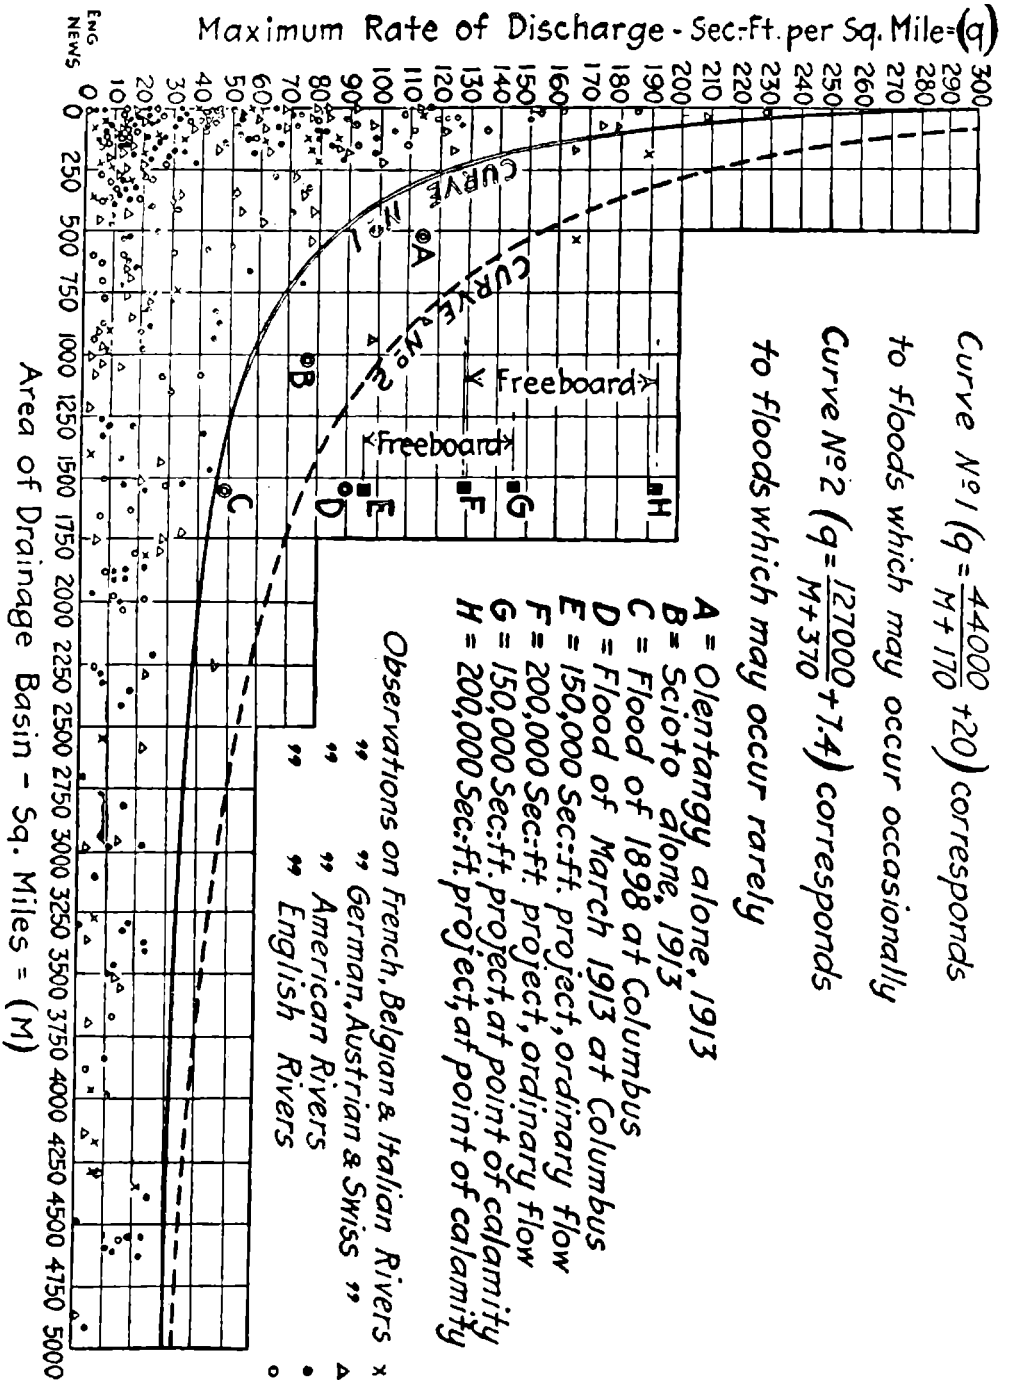 Maximum Rate of Discharge - Sec.-Ft. per Sq. Mile=(q)
ENG
NEWS
0 10 20 30 40 50 60 70 80 90 100 110 120 130 140 150 160 170 180 190 200 210 220 230 240 250 260 270 280 290 300
0 250 500 750 1000 1250 1500 1750 2000 2250 2500 2750 3000 3250 3500 3750 4000 4250 4500 4750 5000
Area of Drainage Basin - Sq. Miles = (M)
CURVE No 1
CURVE No 2
A
B
C
D
E
F
G
H
Freeboard
Freeboard
Curve No 1 (q = 44000/M + 170 + 20) corresponds
to floods which may occur occasionally
Curve No 2 (q = 127000/M + 370 + 7.4) corresponds
to floods which may occur rarely
A = Olentangy alone, 1913
B = Scioto alone, 1913
C = Flood of 1898 at Columbus
D = Flood of March 1913 at Columbus
E = 150,000 Sec.-ft. project, ordinary flow
F = 200,000 Sec.-ft. project, ordinary flow
G = 150,000 Sec.-ft. project, at point of calamity
H = 200,000 Sec.-ft. project, at point of calamity
Observations on French, Belgian & Italian Rivers x
" " German, Austrian & Swiss " △
" " American Rivers •
" " English Rivers o